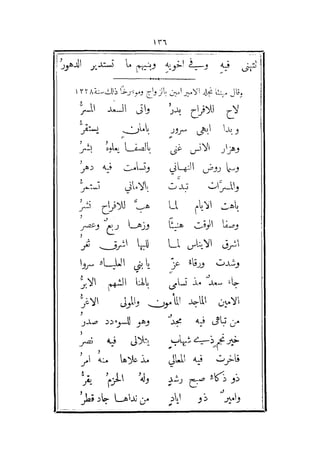 ١٣٦
لتهنى فيه وسيفي اخويه وبنيهم ما تستدير الدهور
وقال مهنئا نجله الامير امين بالزواج ومؤرخا ذلك سنة ١٢٣٨
لاح للافراح بدر وافى السعد المسر
وبدا ابهى سرور بامان يستقر
وهزار الانس غنى بالصفا يعلوه بشر
وسما روض التهاني وتسامت فيه دهر
والمسرات تبدت بالاماني تستمر
باهت الايام لما هب للافراح نشر
وصفا الوقت هنيئا وزها ربع وعصر
اشرق الايناس لما للبها اشرق ثغر
وشدت ورقاء عز يا بني العلياء سروا
جاء سعد مذ تسامى بالهنا الشهم الابر
الامين الماجد المأمون والمولى الاغر
من تباهى فيه مجد وهو للسودد صدر
خير نجم ذي شهاب يتلالى فيه نصر
فاخرت فيه المعالي مذ علاها منه امر
ذو ذكاء صبح رشد وله الحزم يقر
وامير ذو اياد من نداها جاد قطر